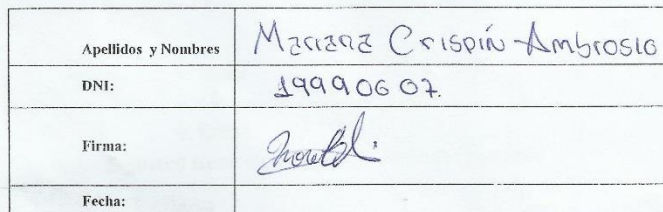 Apellidos y Nombres Mariana Crispín Ambrosio
DNI: 19990607.
Firma:
Fecha: